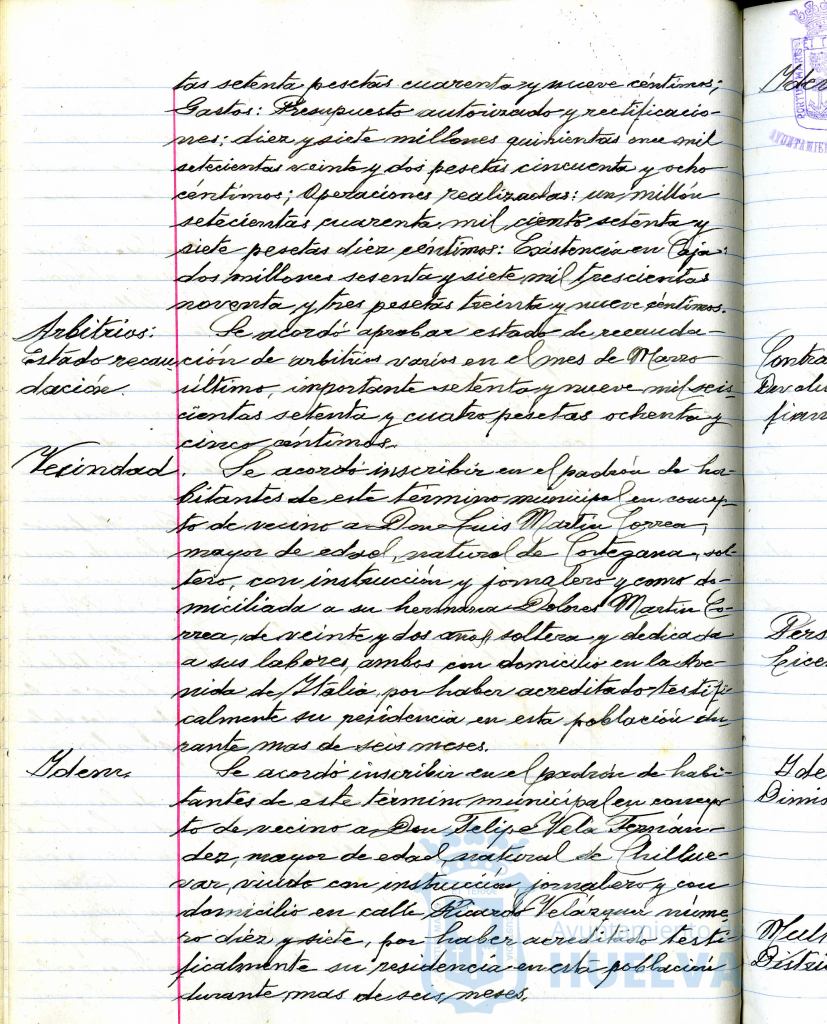 tas setenta pesetas cuarenta y nueve céntimos;
Gastos: Presupuesto autorizado y rectificacio-
nes: diez y siete millones quinientas once mil
setecientas veinte y dos pesetas cincuenta y ocho
céntimos; Operaciones realizadas: un millón
setecientas cuarenta mil ciento setenta y
siete pesetas diez céntimos: Existencia en Caja:
dos millones sesenta y siete mil trescientas
noventa y tres pesetas treinta y nueve céntimos.
Arbitrios:
Estado recau
dación.
Se acordó aprobar estado de recauda-
ción de arbitrios varios en el mes de Marzo
último, importante setenta y nueve mil seis-
cientas setenta y cuatro pesetas ochenta y
cinco céntimos.
Vecindad.
Se acordó inscribir en el padrón de ha-
bitantes de este término municipal en concep-
to de vecino a Don Luis Martín Correa,
mayor de edad, natural de Cortegana, sol-
tero, con instrucción y jornalero y como do-
miciliada a su hermana Dolores Martín Co-
rrea, de veinte y dos años, soltera y dedicada
a sus labores, ambos con domicilio en la Ave-
nida de Itália, por haber acreditado testifi-
calmente su residencia en esta población du-
rante mas de seis meses.
Idem.
Se acordó inscribir en el padrón de habi-
tantes de este término municipal en concep-
to de vecino a Don Felipe Vela Fernán-
dez, mayor de edad, natural de Chillue-
var, viudo con instrucción, jornalero y con
domicilio en calle Ricardo Velázquez núme-
ro diéz y siete, por haber acreditado testi-
ficalmente su residencia en esta población
durante mas de seis meses.
Ayuntamiento de
HUELVA
Contra
Devolu
fian
Pers
Licen
Ide
Dimis
Mult
Distri